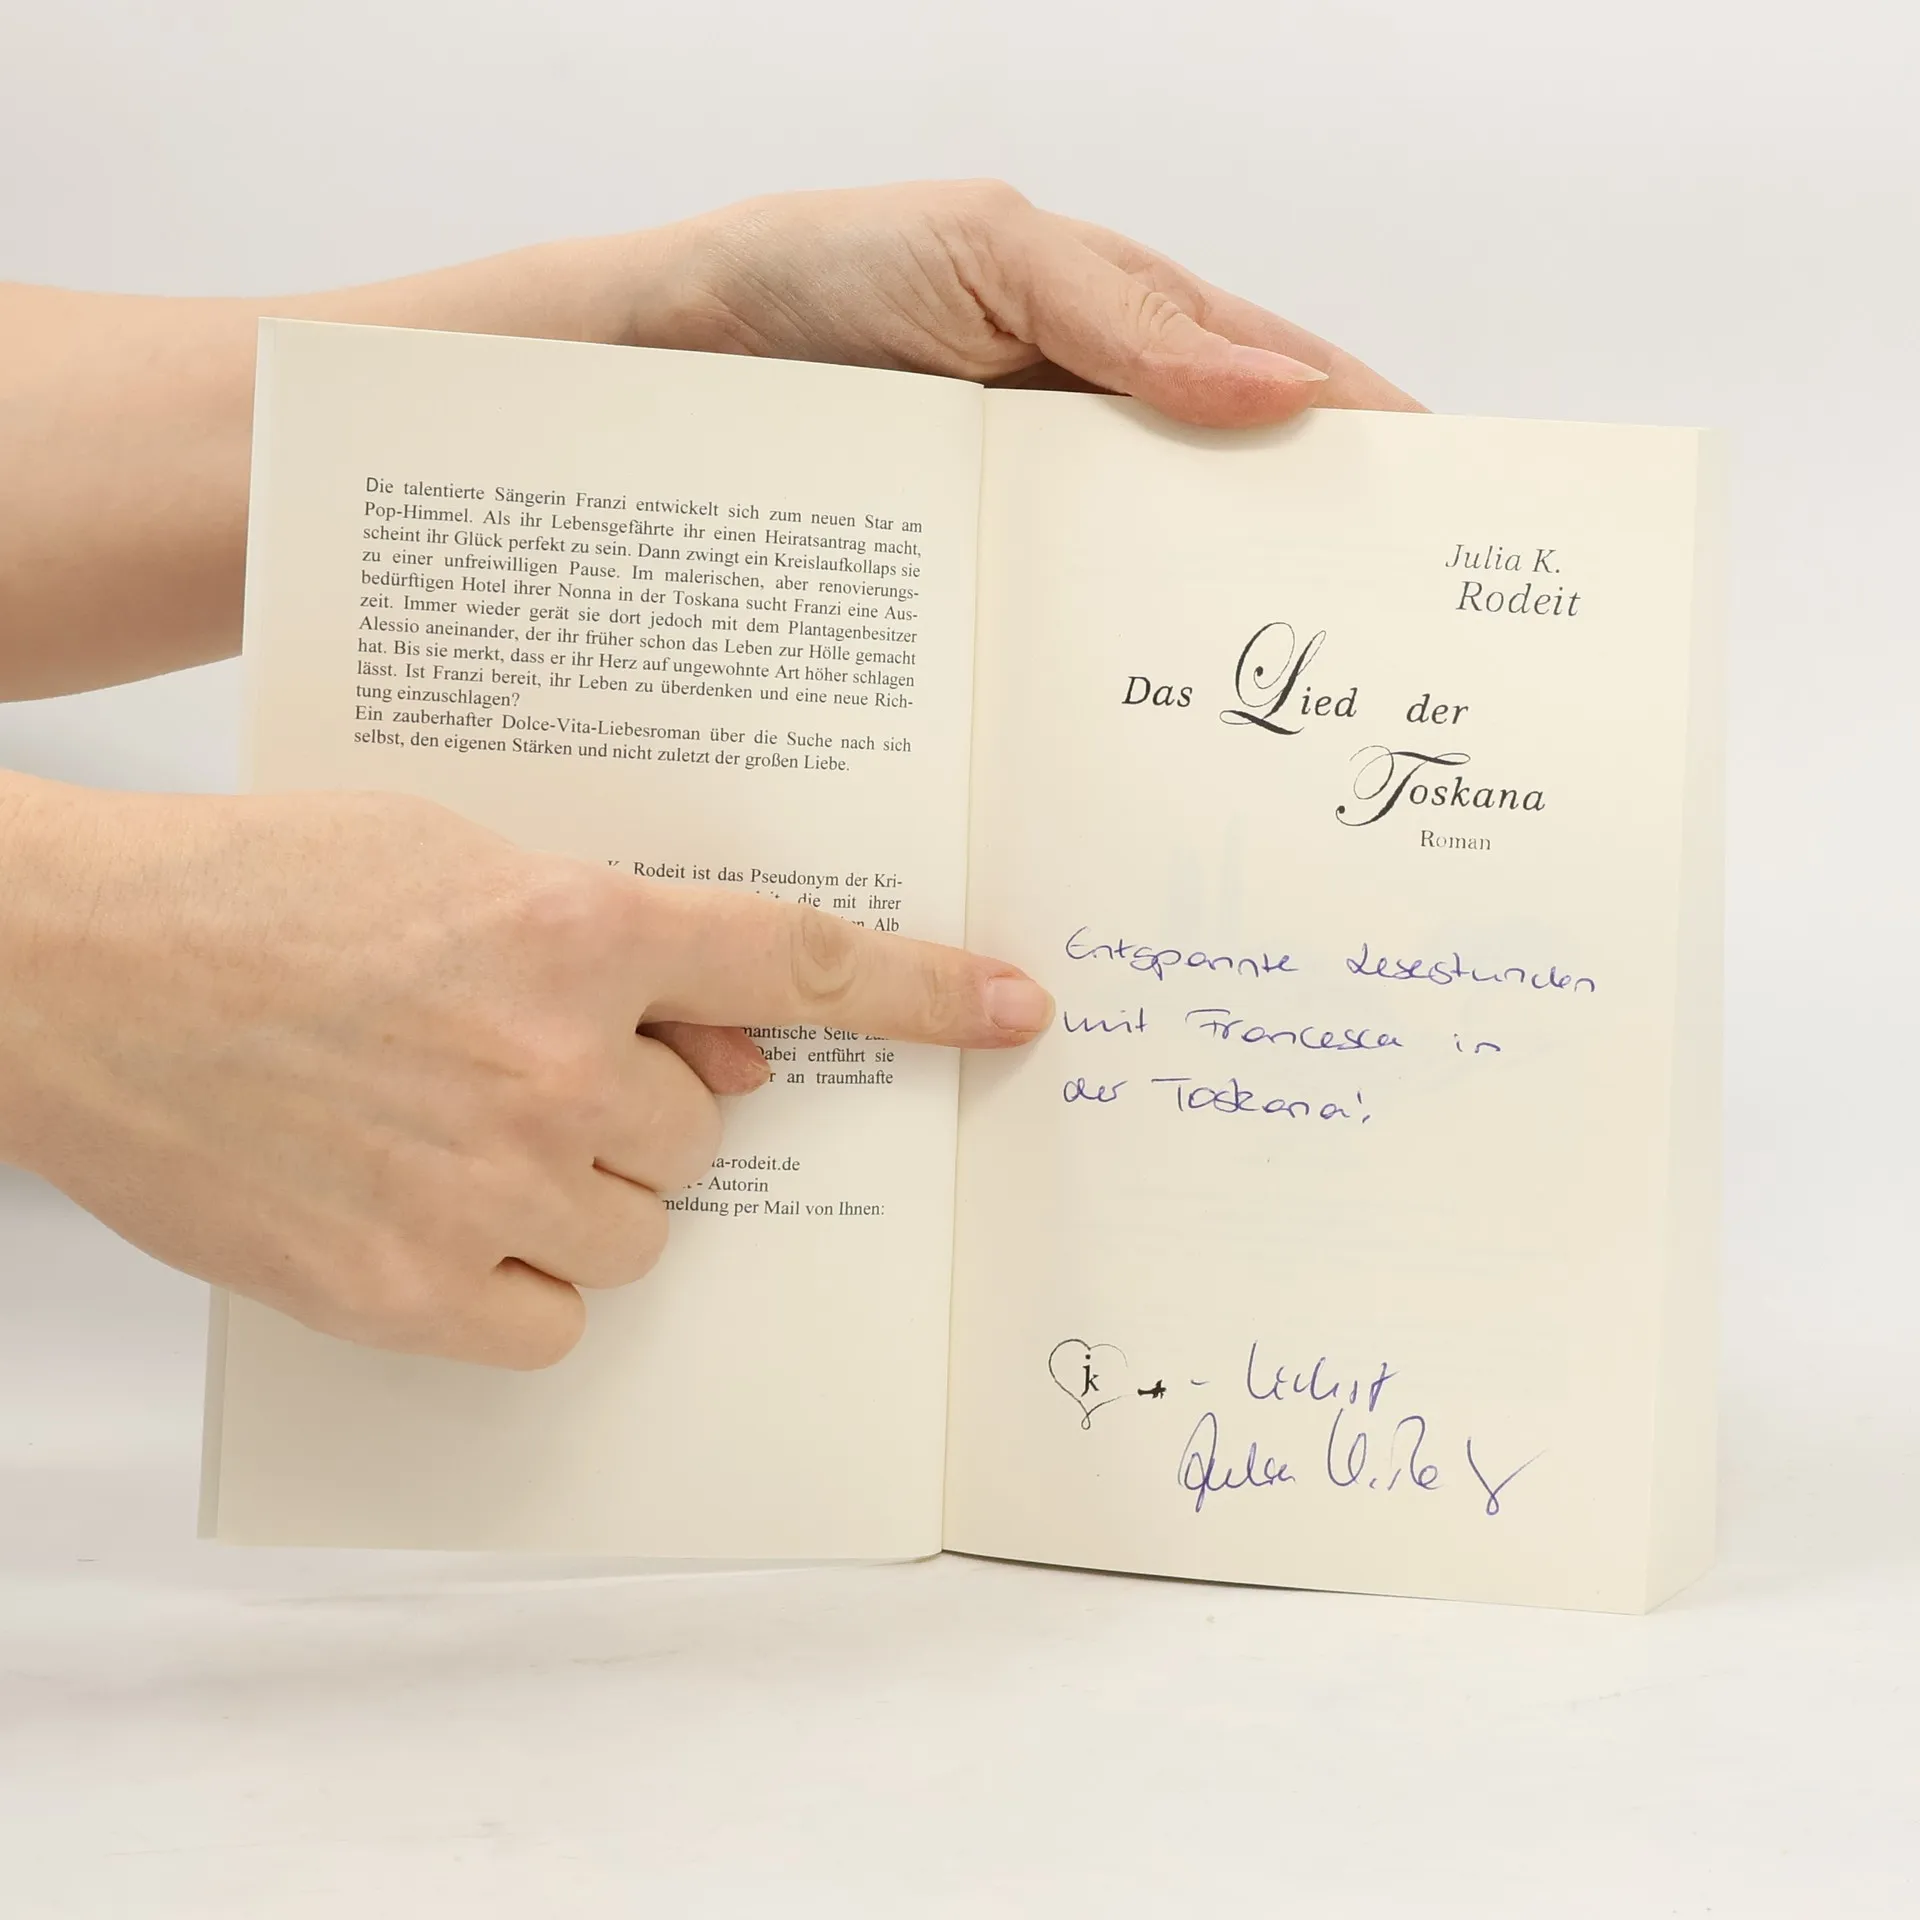 Die talentierte Sängerin Franzi entwickelt sich zum neuen Star am
Pop-Himmel. Als ihr Lebensgefährte ihr einen Heiratsantrag macht,
scheint ihr Glück perfekt zu sein. Dann zwingt ein Kreislaufkollaps sie
zu einer unfreiwilligen Pause. Im malerischen, aber renovierungs-
bedürftigen Hotel ihrer Nonna in der Toskana sucht Franzi eine Aus-
zeit. Immer wieder gerät sie dort jedoch mit dem Plantagenbesitzer
Alessio aneinander, der ihr früher schon das Leben zur Hölle gemacht
hat. Bis sie merkt, dass er ihr Herz auf ungewohnte Art höher schlagen
lässt. Ist Franzi bereit, ihr Leben zu überdenken und eine neue Rich-
tung einzuschlagen?
Ein zauberhafter Dolce-Vita-Liebesroman über die Suche nach sich
selbst, den eigenen Stärken und nicht zuletzt der großen Liebe.
Rodeit ist das Pseudonym der Kri-
die mit ihrer
Alb
mantische Seite
Dabei entführt sie
an traumhafte
ia-rodeit.de
- Autorin
meldung per Mail von Ihnen:
Julia K.
Rodeit
Das Lied der
Toskana
Roman
Entspannte Lesestunden
mit Francesca in
der Toskana!
jk
Julia K.